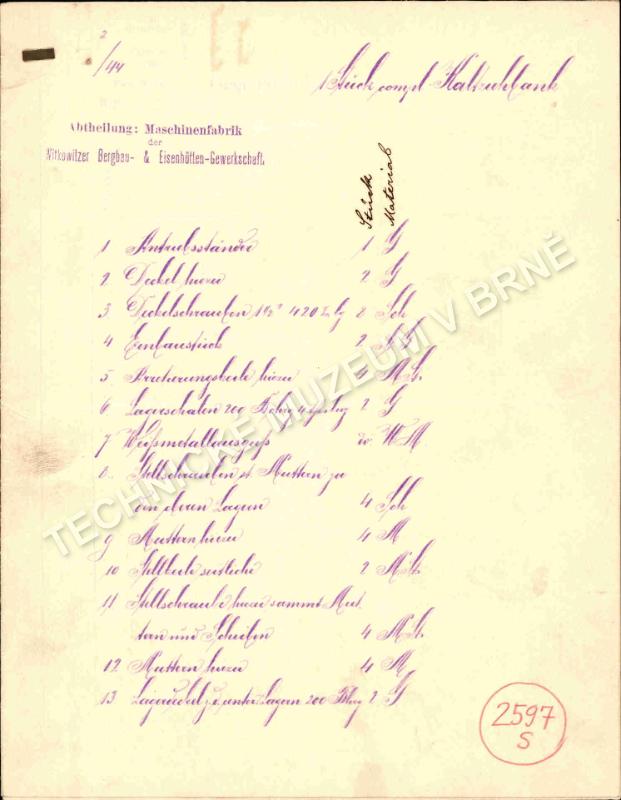 2/44
1 Stück compl. Kaltziehbank
Abtheilung: Maschinenfabrik
der
Witkowitzer Bergbau- & Eisenhütten-Gewerkschaft.
Stück
Material
1 Antriebsständer 1 G
2 Deckel hiezu 2 G
3 Deckelschrauben 1 1/2" 420 lg 8 Sch
4 Einbaustück 2
5 hiezu M.St.
6 Lagerschalen 200 Bohrg 2 G
7 Weißmetallausguß WM
8 Stellschrauben st. Muttern zu
den oberen Lagern 4 Sch
9 Muttern hiezu 4 M
10 Stellkeile seitliche 2 M.St.
11 Stellschraube hiezu sammt Mut
tern und Scheiben 4 M.St.
12 Muttern hiezu 4 M
13 Lagerdeckel z. unter Lagern 200 Bhrg 2 G
TECHNICKÉ MUZEUM V BRNĚ
2597
S